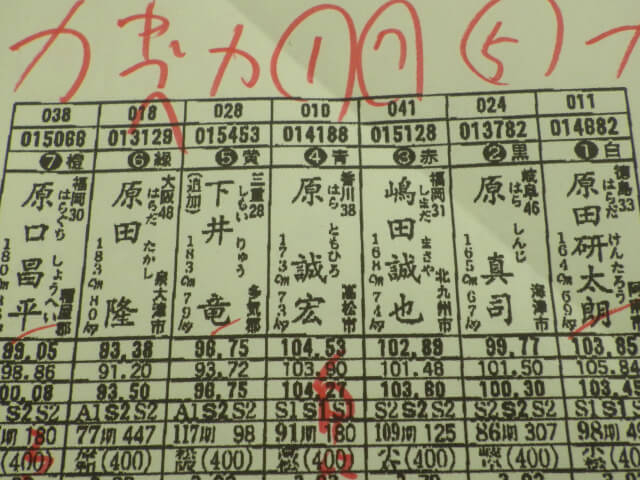 カ カ ① ⑦ ⑤
038 018 028 010 041 024 011
015066 013129 015453 014188 015128 013782 014682
❼橙 ❻緑 ❺黄 ❹青 ❸赤 ❷黒 ❶白
福岡30 大阪48 三重28 香川38 福岡31 岐阜46 徳島33
はらぐち しょうへい はらだ たかし しもい りゅう はら ともひろ しまだ まさや はら しんじ はらだ けんたろう
原口昌平 原田 隆 (追加) 下井 竜 原 誠宏 嶋田誠也 原 真司 原田研太朗
180cm 183cm80kg 183cm79kg 173cm73kg 168cm74kg 165cm67kg 164cm69kg
糟屋郡 泉大津市 多気郡 高松市 北九州市 海津市
99.05 93.38 96.75 104.53 102.89 99.77 103.85
98.86 91.20 93.72 103.90 101.48 101.50 105.84
00.08 93.50 96.75 104.27 103.60 100.30 103.4
S2S2 A1S2S2 A1S2S2 S1S1S1 S2S2S2 S2S2S2 S1S1S
期180 77期447 117期 98 91期 80 109期125 86期307 98期49
(400) (400) (400) (400) (400) (400) (40